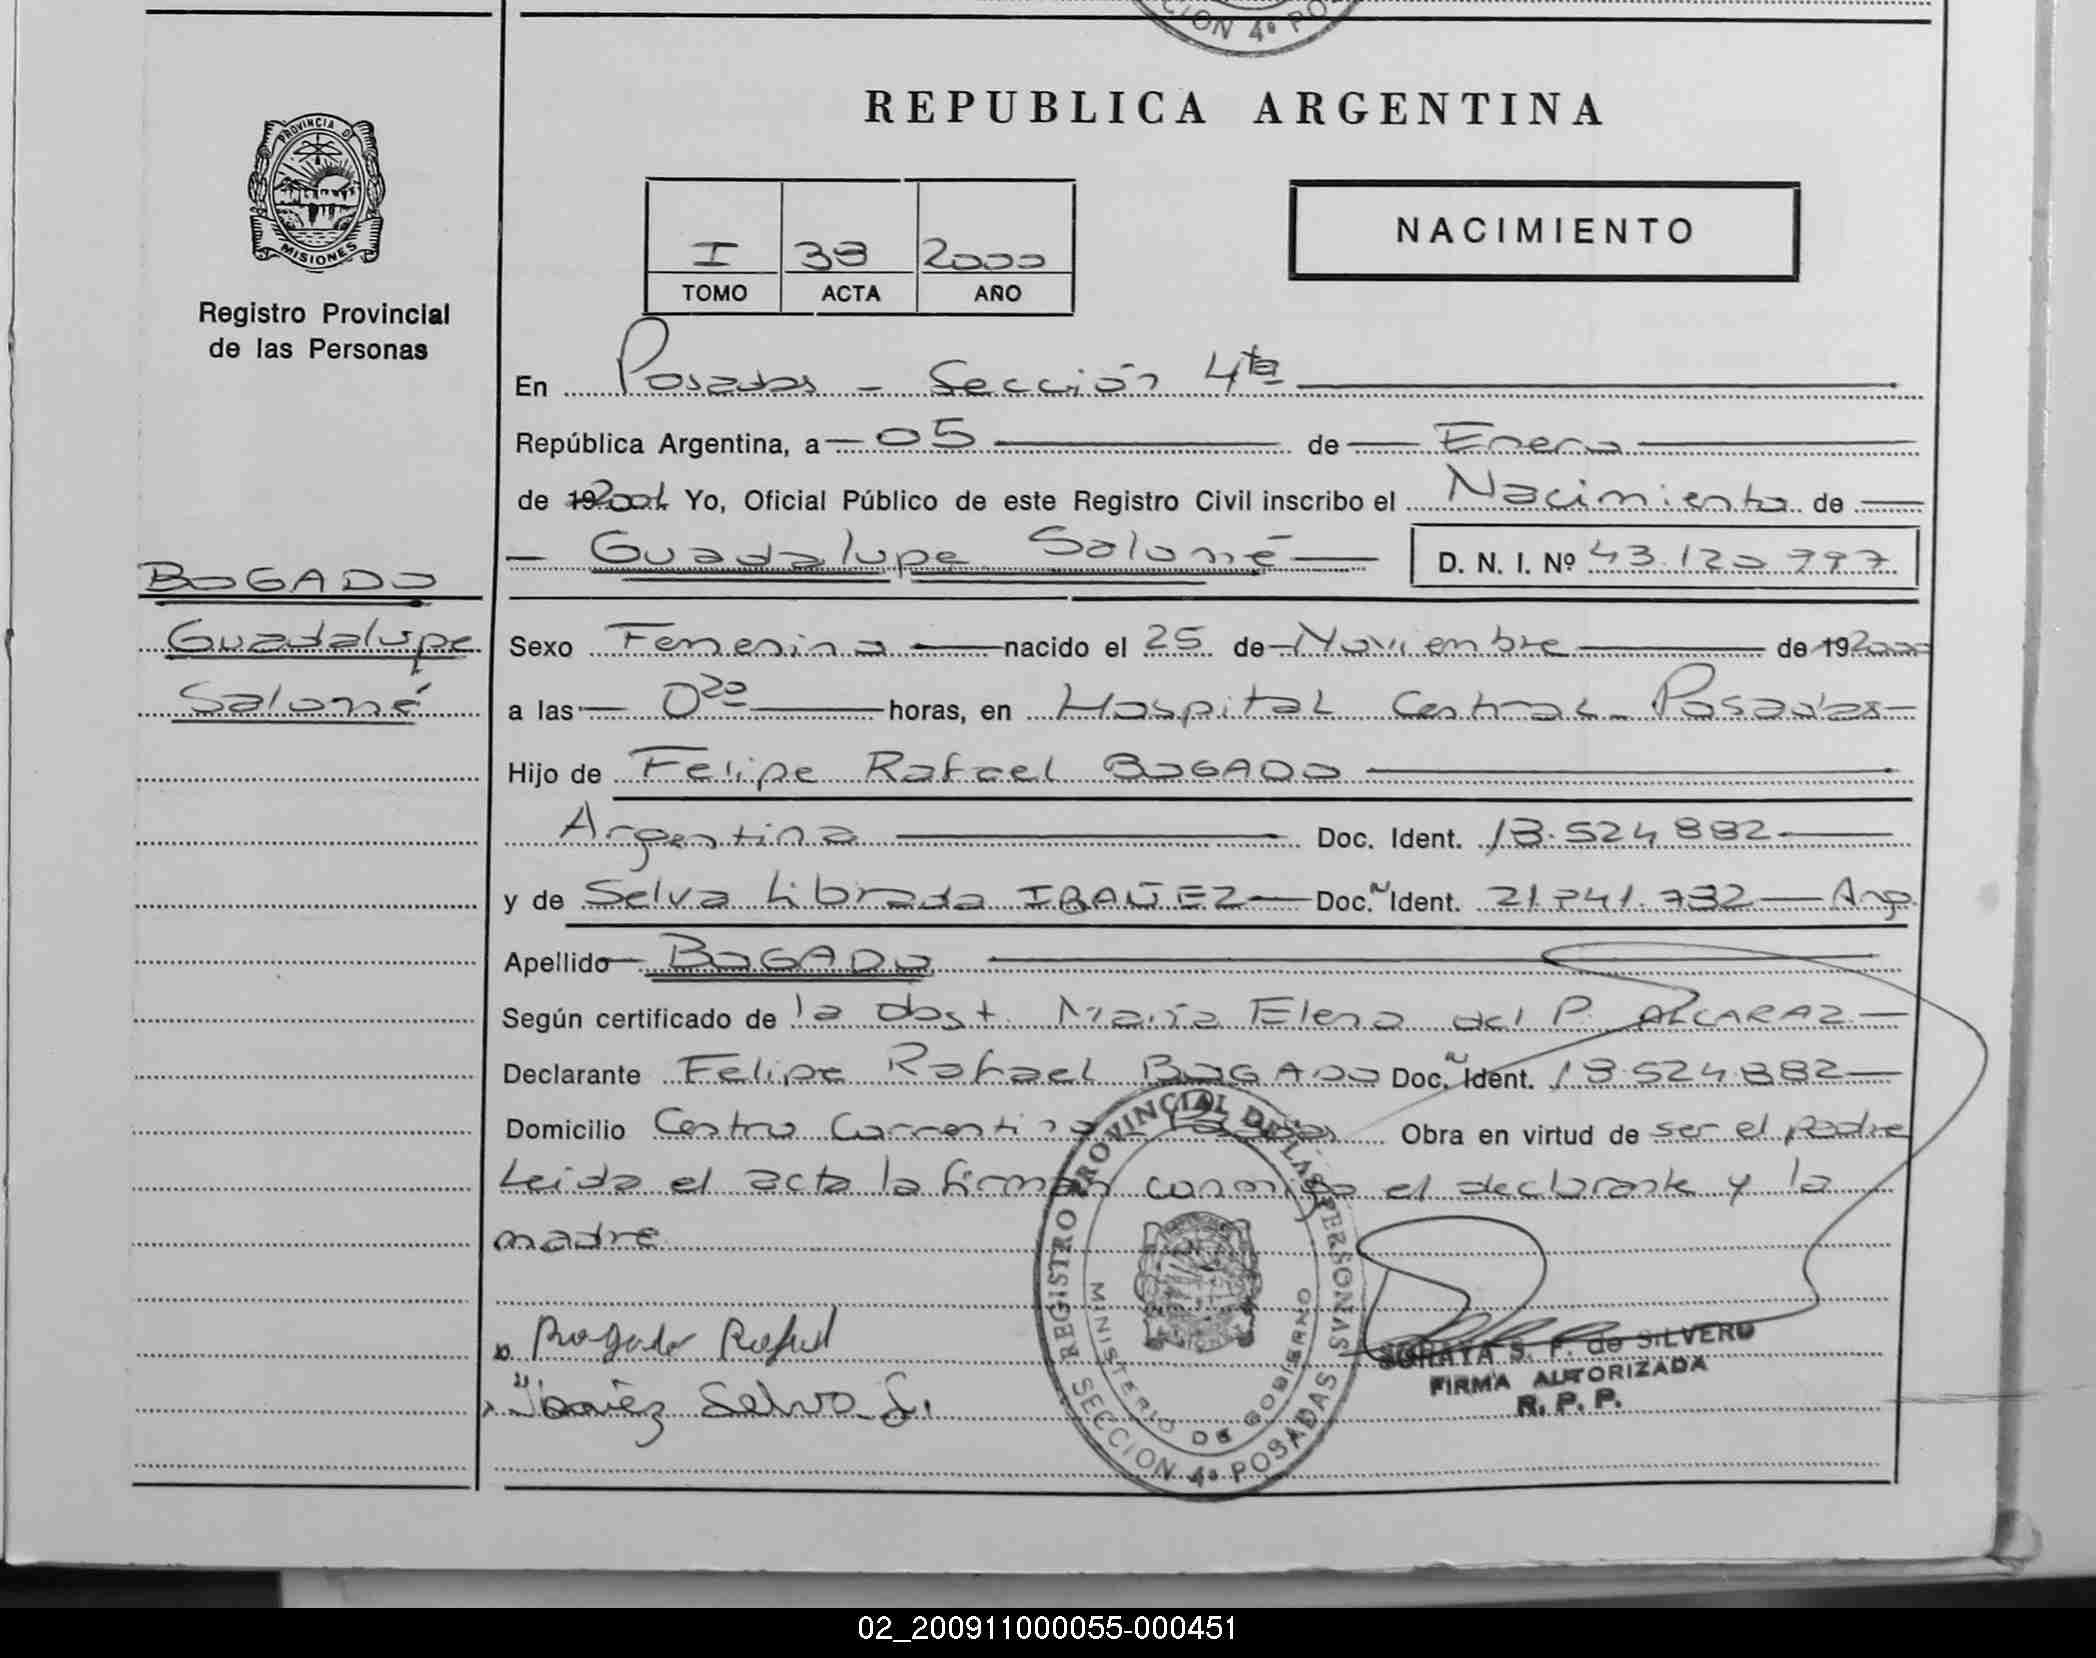 CION 4ª PO
REPUBLICA ARGENTINA
PROVINCIA DE MISIONES
I 38 2000
TOMO ACTA AÑO
NACIMIENTO
Registro Provincial
de las Personas
En Posadas - Sección 4ta
República Argentina, a 05 de Enero
de 192001 Yo, Oficial Público de este Registro Civil inscribo el Nacimiento de
Guadalupe Salomé D. N. I. Nº 43.120.797
BOGADO
Guadalupe
Salomé
Sexo Femenino nacido el 25 de Noviembre de 192000
a las 0²⁰ horas, en Hospital Central - Posadas
Hijo de Felipe Rafael BOGADO
Argentina Doc. Ident. 18.524.882
y de Selva Librada IBAÑEZ Doc. Ident. 21.741.732 Arg.
Apellido BOGADO
Según certificado de la obst. María Elena del P. ALCARAZ
Declarante Felipe Rafael BOGADO Doc. Ident. 18.524.882
Domicilio Centro Correntino - Posadas Obra en virtud de ser el padre
Leida el acta la firman conmigo el declarante y la
madre
Bogado Rafael
Ibañez Selva L.
REGISTRO PROVINCIAL DE LAS PERSONAS
MINISTERIO DE GOBIERNO
SECCION 4ª POSADAS
SORAYA S. F. de SILVERO
FIRMA AUTORIZADA
R. P. P.
02_200911000055-000451